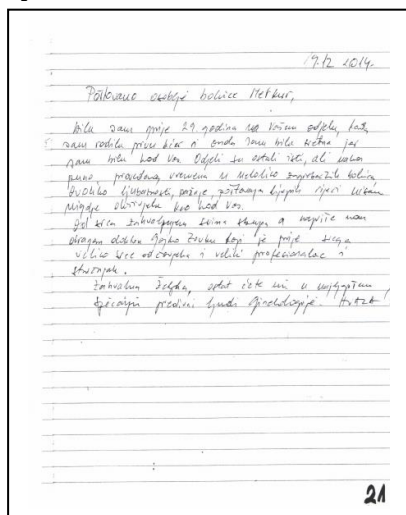 19.12.2014.
Poštovano osoblje bolnice Merkur,
bila sam prije 29. godina na Vašem odjelu, kada
sam rodila prvu kćer i onda sam bila sretna jer
sam bila kod vas. Odjeli su ostali isti, ali nakon
puno, provedenog vremena u nekoliko zagrebačkih bolnica
ovoliko ljubaznosti, pažnje, poštovanja lijepih riječi nisam
nigdje doživjela kao kod vas.
Od srca zahvaljujem svima skupa a najviše nam
dragom doktoru Gojko Zovku koji je prije svega
veliko srce od čovjeka i veliki profesionalac i
stručnjak.
Zahvalna Željka, ostat ćete mi u najljepšem
sjećanju predivni ljudi Ginekologije.
21